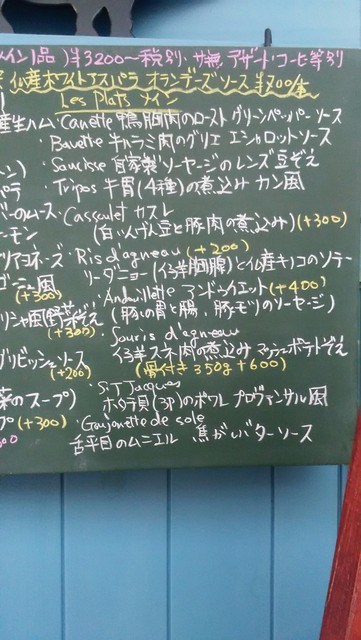 メイン1品) ¥3200〜税別・サ無 デザート・コーヒ等別
仏産ホワイトアスパラ オランデーズソース ¥700/
Les Plats メイン
産生ハム・Canette 鴨胸肉のロースト グリーンペパーソース
・Bavette 牛ハラミ肉のグリエ エシャロットソース
・Saucisse 自家製ソーセージのレンズ豆ぞえ
パラ ・Tripes 牛胃(4種)の煮込み カン風
のムース・Cassoulet カスレ
(白いんげん豆と豚肉の煮込み)(+300)
・Ris d'agneau (+200)
リ・ダニョー(仔羊胸腺)と仏産キノコのソテー
風 (+300) ・Andouillette アンドゥイエット(+400)
(豚の胃と腸、豚モツのソーセージ)
(+300) ・Souris d'agneau
グリビッシュソース 仔羊スネ肉の煮込み マッシュポテトぞえ
(+200) (骨付き350g+600)
・ST Jacques
菜のスープ) ホタテ貝(3P)のポワレ プロヴァンサル風
プ(+300) ・Goujonette de sole
舌平目のムニエル 焦がしバターソース